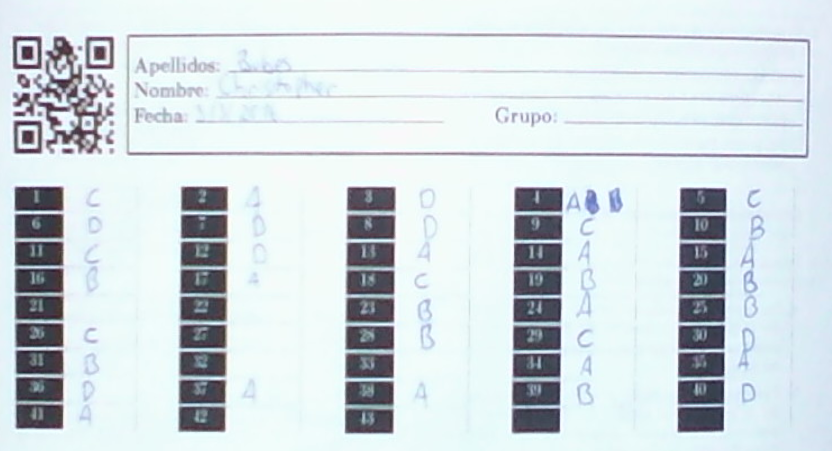 Apellidos:
Nombre: Christopher
Fecha: Grupo:
1 C 2 A 3 D 4 A 5 C
6 D 7 D 8 D 9 C 10 B
11 C 12 D 13 A 14 A 15 A
16 B 17 A 18 C 19 B 20 B
21 22 23 B 24 A 25 B
26 C 27 28 B 29 C 30 D
31 B 32 33 34 A 35 A
36 D 37 A 38 A 39 B 40 D
41 A 42 43